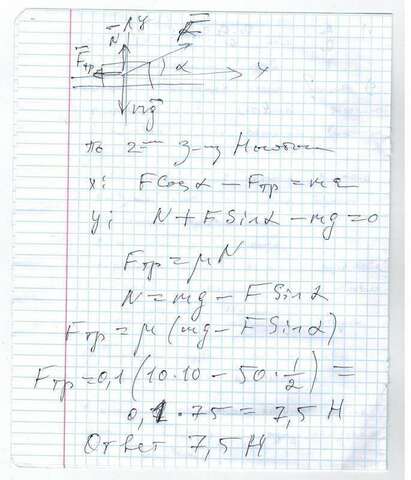 N y F
Fтр α x
mg
По 2ᵐ з-ну Ньютона
x: Fcosα − Fтр = ma
y: N + Fsinα − mg = 0
Fтр = μN
N = mg − Fsinα
Fтр = μ(mg − Fsinα)
Fтр = 0,1(10·10 − 50·1/2) =
0,1·75 = 7,5 Н
Ответ 7,5 Н